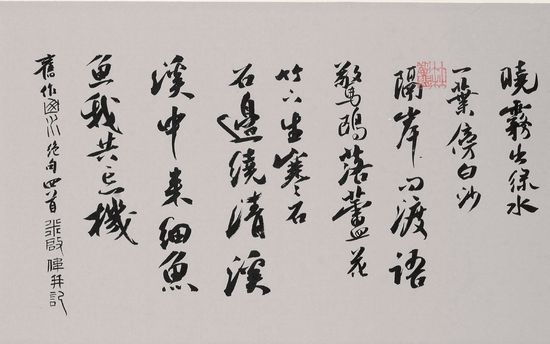 曉霧出綠水
一葉傍白沙
隔岸問渡語
驚鷗落蘆花
竹下生寒石
石邊繞清溪
溪中来細魚
魚我共忘機
舊作 絕句四首 張啟 并記